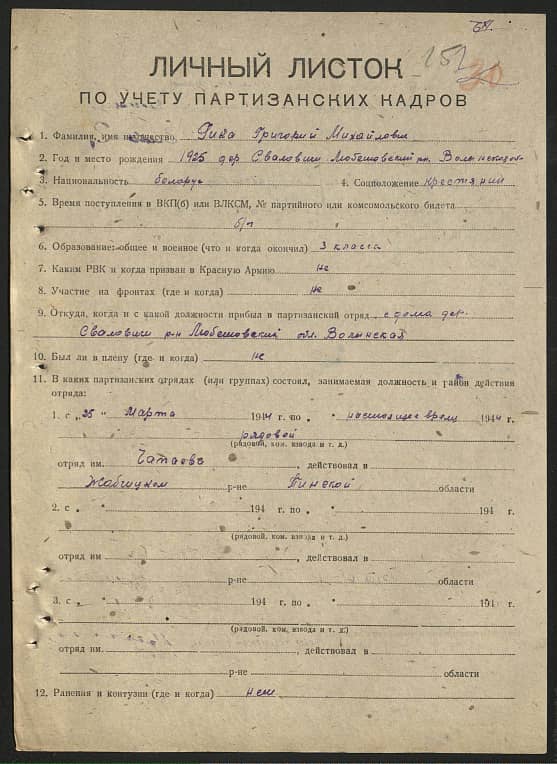 ЛИЧНЫЙ ЛИСТОК
ПО УЧЕТУ ПАРТИЗАНСКИХ КАДРОВ
1. Фамилия, имя и отчество Григорий Михайлович
2. Год и место рождения 1925 дер Сваловичи Любешовский рн. Волынской обл
3. Национальность беларус 4. Соцположение крестянин
5. Время поступления в ВКП(б) или ВЛКСМ, № партийного или комсомольского билета
б/п
6. Образование: общее и военное (что и когда окончил) 3 класса
7. Каким РВК и когда призван в Красную Армию не
8. Участие на фронтах (где и когда) не
9. Откуда, когда и с какой должности прибыл в партизанский отряд с дома дер.
Сваловичи р-н Любешовский обл. Волынская
10. Был ли в плену (где и когда) не
11. В каких партизанских отрядах (или группах) состоял, занимаемая должность и район действия
отряда:
1. с „25 " Марта 1944 г. по „ " настоящее время 1944 г.
рядовой
(рядовой, ком. взвода и т. д.)
отряд им. Чапаева, действовал в
Жабчицком р-не Пинской области
2. с „ " 194 г. по „ " 194 г.
(рядовой, ком. взвода и т. д.)
отряд им , действовал в
р-не области
3. с „ " 194 г. по „ " 194 г.
(рядовой, ком. взвода и т. д.)
отряд им. , действовал в
р-не области
12. Ранения и контузии (где и когда) нет